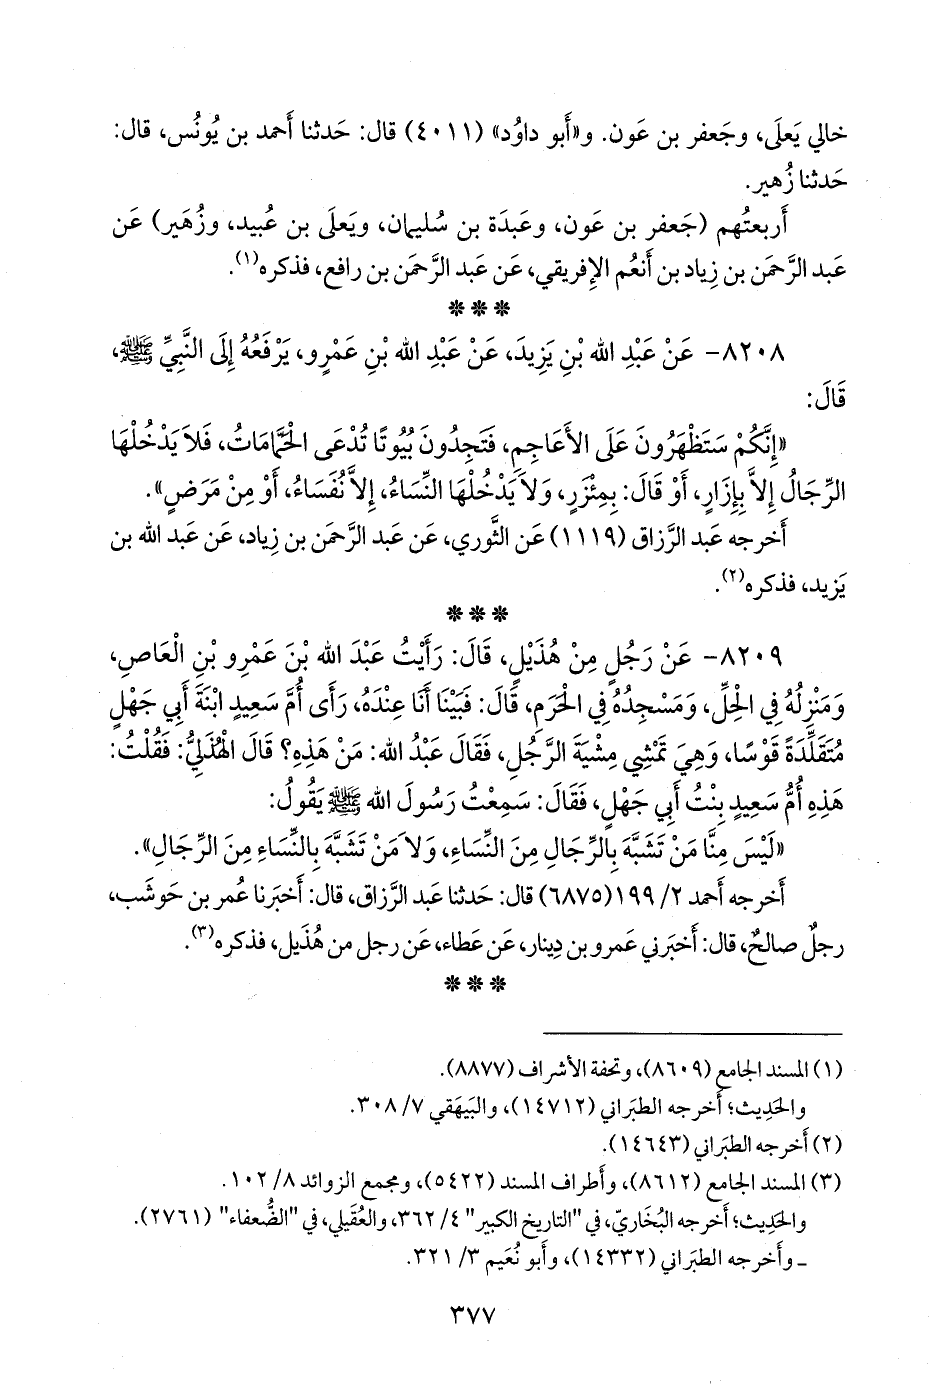 خالي يَعلَى، وجَعفر بن عَون. و«أَبو داوُد» (٤٠١١) قال: حَدثنا أَحمد بن يُونُس، قال:
حَدثنا زُهير.
أَربعتُهم (جَعفر بن عَون، وعَبدَة بن سُليمان، ويَعلَى بن عُبيد، وزُهَير) عَن
عَبد الرَّحمَن بن زِياد بن أَنعُم الإِفريقي، عَن عَبد الرَّحمَن بن رافع، فذكره(١).
***
٨٢٠٨- عَنْ عَبْدِ الله بْنِ يَزِيدَ، عَنْ عَبْدِ الله بْنِ عَمْرٍو، يَرْفَعُهُ إِلَى النَّبِيِّ ﷺ،
قَالَ:
«إِنَّكُمْ سَتَظْهَرُونَ عَلَى الأَعَاجِمِ، فَتَجِدُونَ بُيُوتًا تُدْعَى الْحَمَّامَاتُ، فَلاَ يَدْخُلْهَا
الرِّجَالُ إِلاَّ بِإِزَارٍ، أَوْ قَالَ: بِمِئْزَرٍ، وَلاَ يَدْخُلْهَا النِّسَاءُ، إِلاَّ نُفَسَاءُ، أَوْ مِنْ مَرَضٍ».
أَخرجه عَبد الرَّزاق (١١١٩) عَن الثَّوري، عَن عَبد الرَّحمَن بن زِياد، عَن عَبد الله بن
يَزيد، فذكره(٢).
***
٨٢٠٩- عَنْ رَجُلٍ مِنْ هُذَيْلٍ، قَالَ: رَأَيْتُ عَبْدَ الله بْنَ عَمْرِو بْنِ الْعَاصِ،
وَمَنْزِلُهُ فِي الْحِلِّ، وَمَسْجِدُهُ فِي الْحَرَمِ، قَالَ: فَبَيْنَا أَنَا عِنْدَهُ، رَأَى أُمَّ سَعِيدٍ ابْنَةَ أَبِي جَهْلٍ
مُتَقَلِّدَةً قَوْسًا، وَهِيَ تَمْشِي مِشْيَةَ الرَّجُلِ، فَقَالَ عَبْدُ الله: مَنْ هَذِهِ؟ قَالَ الْهُذَلِيُّ: فَقُلْتُ:
هَذِهِ أُمُّ سَعِيدٍ بِنْتُ أَبِي جَهْلٍ، فَقَالَ: سَمِعْتُ رَسُولَ الله ﷺ يَقُولُ:
«لَيْسَ مِنَّا مَنْ تَشَبَّهَ بِالرِّجَالِ مِنَ النِّسَاءِ، وَلاَ مَنْ تَشَبَّهَ بِالنِّسَاءِ مِنَ الرِّجَالِ».
أَخرجه أَحمد ٢/ ١٩٩(٦٨٧٥) قال: حَدثنا عَبد الرَّزاق، قال: أَخبَرنا عُمر بن حَوشَب،
رجلٌ صالحٌ، قال: أَخبَرني عَمرو بن دِينار، عَن عَطاء، عَن رجل من هُذَيل، فذكره(٣).
***
(١) المسند الجامع (٨٦٠٩)، وتحفة الأشراف (٨٨٧٧).
والحَدِيث؛ أَخرجه الطبَراني (١٤٧١٢)، والبَيهَقي ٧/ ٣٠٨.
(٢) أَخرجه الطبَراني (١٤٦٤٣).
(٣) المسند الجامع (٨٦١٢)، وأَطراف المسند (٥٤٢٢)، ومجمع الزوائد ٨/ ١٠٢.
والحَدِيث؛ أَخرجه البُخَاريّ، في "التاريخ الكبير" ٤/ ٣٦٢، والعُقَيلي، في "الضُّعفاء" (٢٧٦١).
ـ وأَخرجه الطبَراني (١٤٣٣٢)، وأَبو نُعَيم ٣/ ٣٢١.
٣٧٧